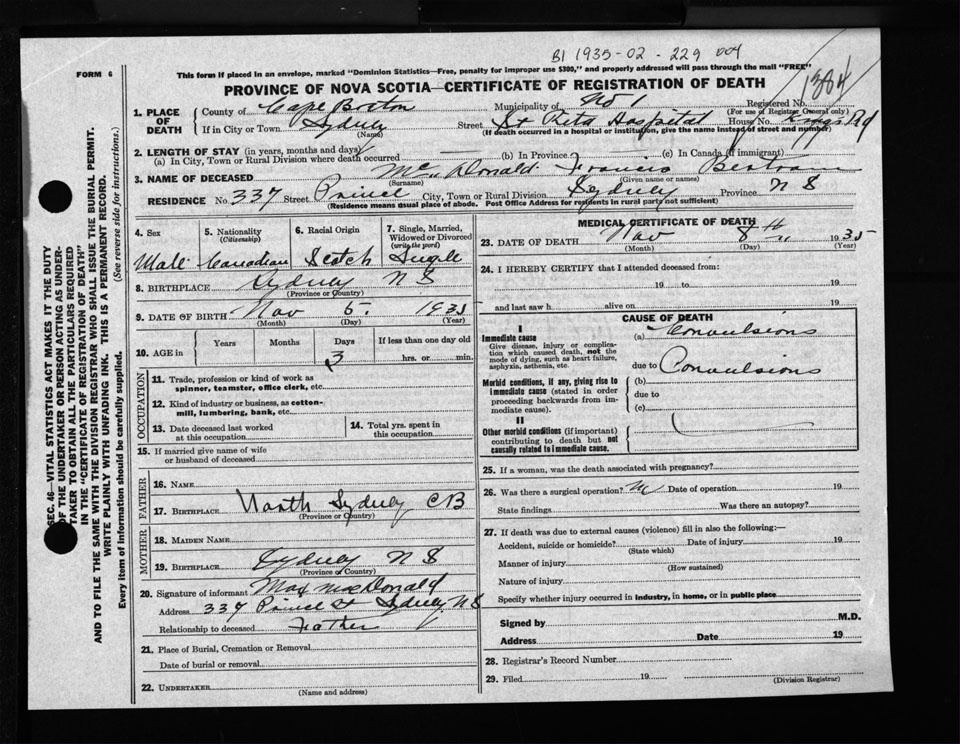 B1 1935-02-229004
FORM 6
This form if placed in an envelope, marked "Dominion Statistics—Free, penalty for improper use $300," and properly addressed will pass through the mail "FREE"
PROVINCE OF NOVA SCOTIA—CERTIFICATE OF REGISTRATION OF DEATH
1384
1. PLACE OF DEATH
County of Cape Breton Municipality of No 1 Registered No.
(For use of Registrar General only)
If in City or Town Sydney Street St Rita Hospital House No. Kings Rd
(Name) (If death occurred in a hospital or institution, give the name instead of street and number)
2. LENGTH OF STAY (in years, months and days)
(a) In City, Town or Rural Division where death occurred (b) In Province (c) In Canada (if immigrant)
3. NAME OF DECEASED McDonald Francis
(Surname) (Given name or names)
RESIDENCE No. 337 Street Prince City, Town or Rural Division Sydney Province N S
(Residence means usual place of abode. Post Office Address for residents in rural parts not sufficient)
4. Sex
Male
5. Nationality
(Citizenship)
Canadian
6. Racial Origin
Scotch
7. Single, Married, Widowed or Divorced
(write the word)
Single
8. BIRTHPLACE Sydney N S
(Province or Country)
9. DATE OF BIRTH Nov 5. 1935
(Month) (Day) (Year)
10. AGE in Years Months Days If less than one day old
3 hrs. or min.
OCCUPATION
11. Trade, profession or kind of work as
spinner, teamster, office clerk, etc.
12. Kind of industry or business, as cotton-
mill, lumbering, bank, etc.
13. Date deceased last worked
at this occupation
14. Total yrs. spent in
this occupation
15. If married give name of wife
or husband of deceased
FATHER
16. Name
17. BIRTHPLACE North Sydney CB
(Province or Country)
MOTHER
18. MAIDEN NAME
19. BIRTHPLACE Sydney N S
(Province or Country)
20. Signature of informant MacDonald
Address 337 Prince St Sydney N S
Relationship to deceased Father
21. Place of Burial, Cremation or Removal
Date of burial or removal
22. UNDERTAKER
(Name and address)
MEDICAL CERTIFICATE OF DEATH
23. DATE OF DEATH Nov 8th 1935
(Month) (Day) (Year)
24. I HEREBY CERTIFY that I attended deceased from:
19 to 19
and last saw h alive on 19
CAUSE OF DEATH
I
Immediate cause
Give disease, injury or complica-
tion which caused death, not the
mode of dying, such as heart failure,
asphyxia, asthenia, etc.
(a) Convulsions
due to Convulsions
Morbid conditions, if any, giving rise to
immediate cause (stated in order
proceeding backwards from im-
mediate cause).
(b)
due to
(c)
II
Other morbid conditions (if important)
contributing to death but not
causally related to immediate cause.
25. If a woman, was the death associated with pregnancy?
26. Was there a surgical operation? Date of operation 19
State findings Was there an autopsy?
27. If death was due to external causes (violence) fill in also the following:—
Accident, suicide or homicide? Date of injury 19
(State which)
Manner of injury
(How sustained)
Nature of injury
Specify whether injury occurred in industry, in home, or in public place
Signed by M.D.
Address Date 19
28. Registrar's Record Number
29. Filed 19
(Division Registrar)
SEC. 46—VITAL STATISTICS ACT MAKES IT THE DUTY
OF THE UNDERTAKER OR PERSON ACTING AS UNDER-
TAKER TO OBTAIN ALL THE PARTICULARS REQUIRED
IN THE "CERTIFICATE OF REGISTRATION OF DEATH"
AND TO FILE THE SAME WITH THE DIVISION REGISTRAR WHO SHALL ISSUE THE BURIAL PERMIT.
WRITE PLAINLY WITH UNFADING INK. THIS IS A PERMANENT RECORD.
Every item of information should be carefully supplied. (See reverse side for instructions.)